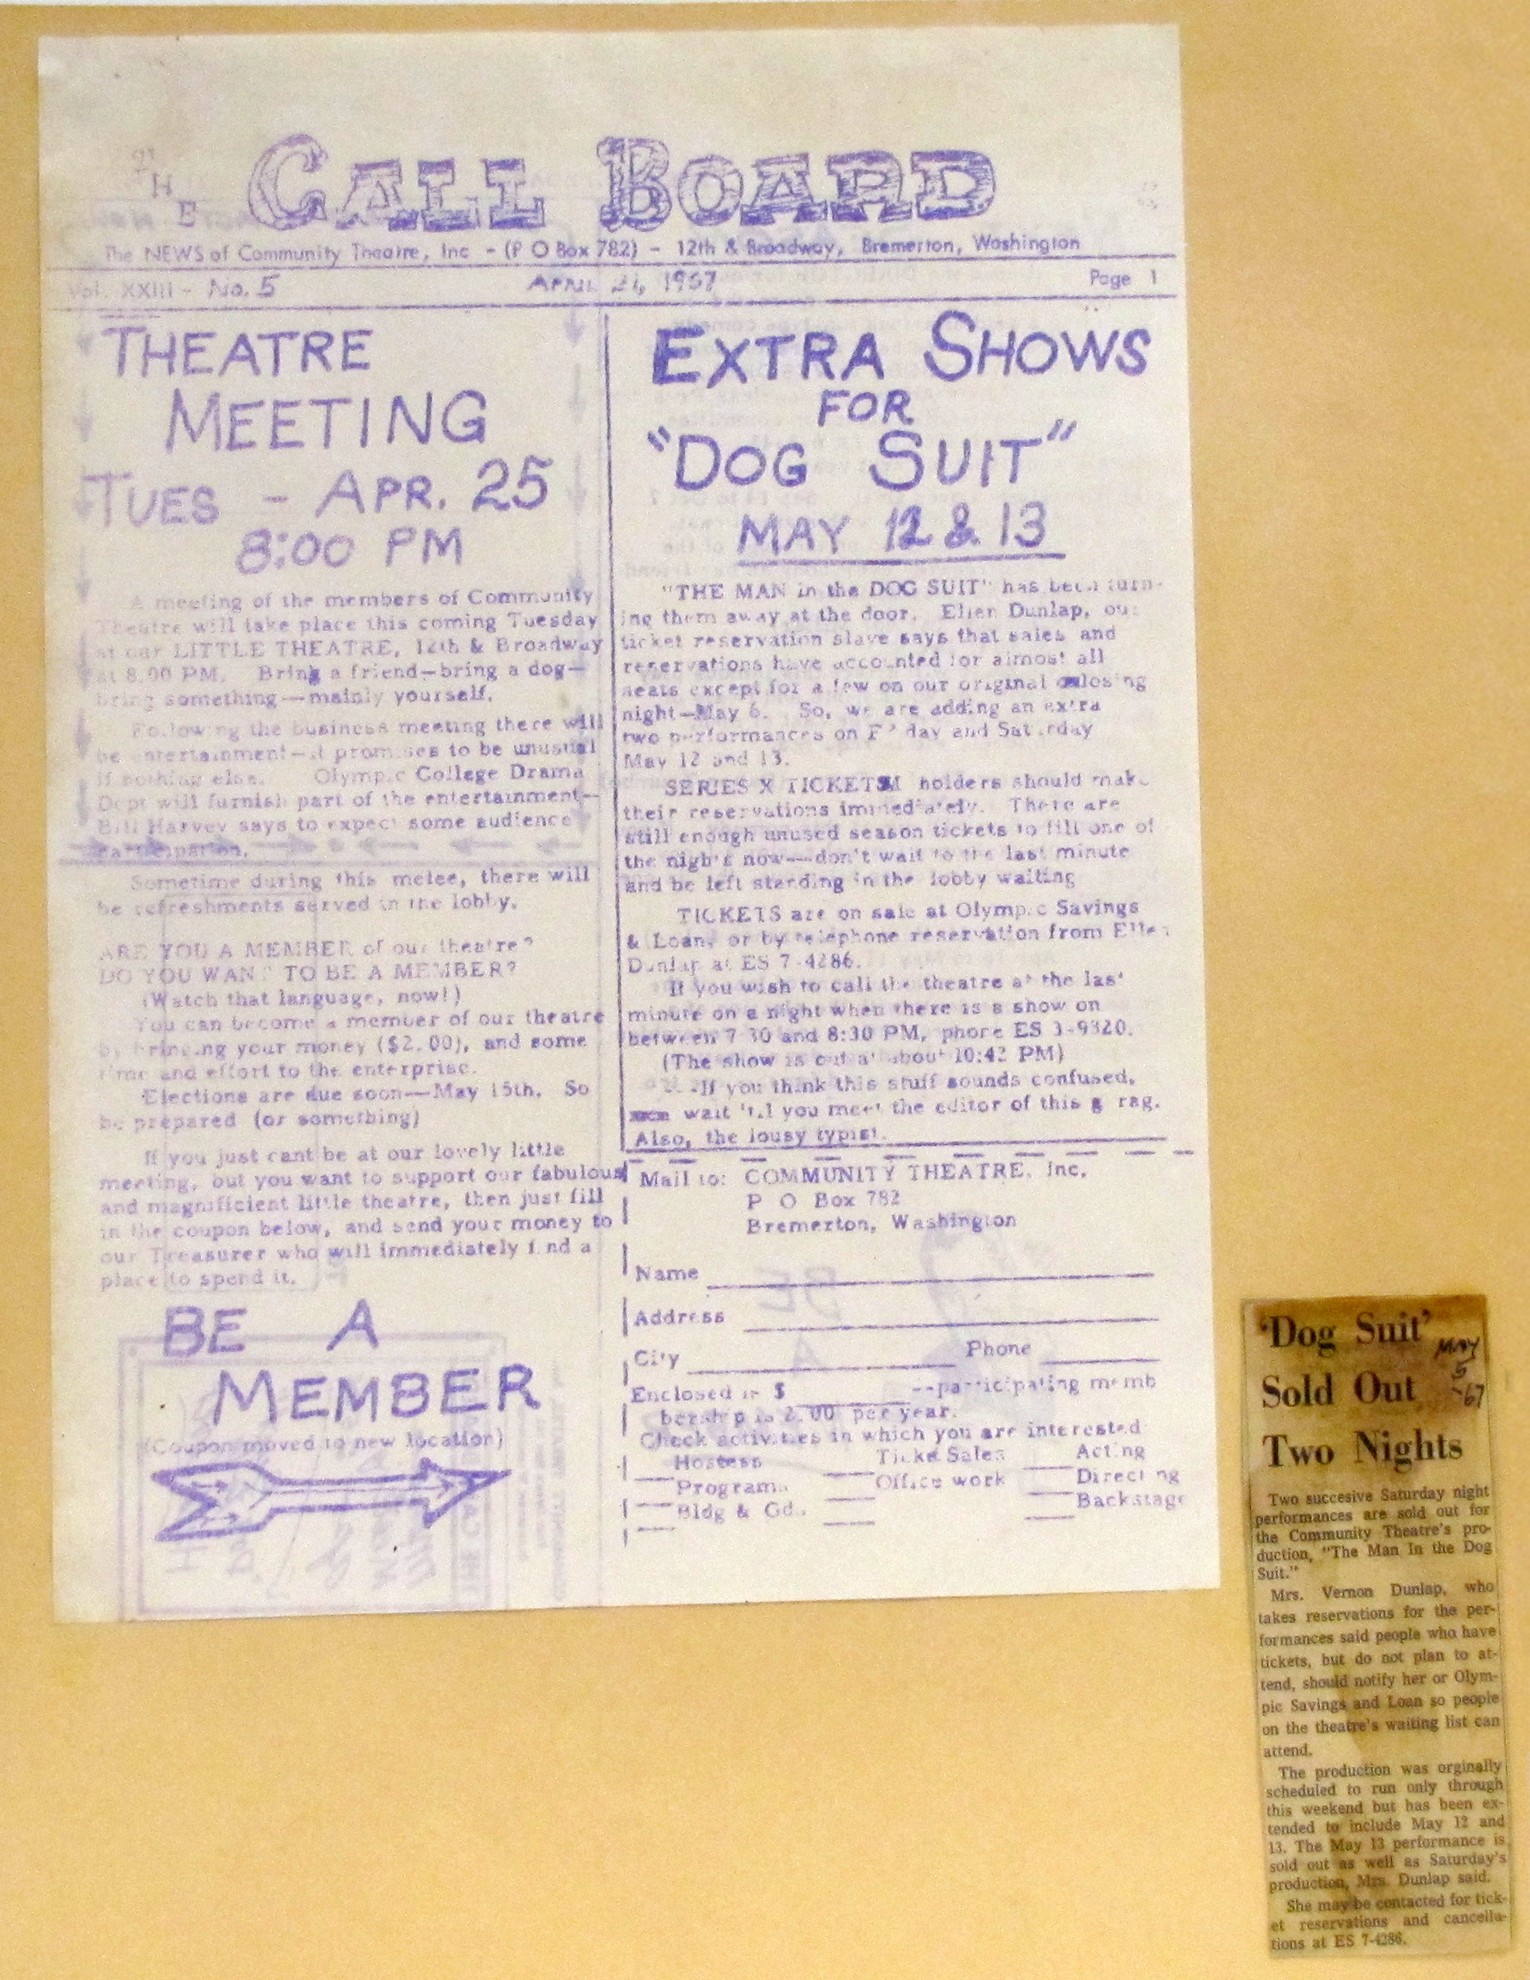 THE CALL BOARD
The NEWS of Community Theatre, Inc - (P O Box 782) - 12th & Broadway, Bremerton, Washington
Vol. XXIII - No. 5
APRIL 21, 1967
Page 1
THEATRE
MEETING
TUES - APR. 25
8:00 PM
A meeting of the members of Community
Theatre will take place this coming Tuesday
at our LITTLE THEATRE, 12th & Broadway
at 8.00 PM. Bring a friend—bring a dog—
bring something—mainly yourself.
Following the business meeting there will
be entertainment—it promises to be unusual
if nothing else. Olympic College Drama
Dept will furnish part of the entertainment—
Bill Harvey says to expect some audience
participation.
Sometime during this melee, there will
be refreshments served in the lobby.
ARE YOU A MEMBER of our theatre?
DO YOU WANT TO BE A MEMBER?
(Watch that language, now!)
You can become a member of our theatre
by bringing your money ($2.00), and some
time and effort to the enterprise.
Elections are due soon—May 15th. So
be prepared (or something)
If you just cant be at our lovely little
meeting, but you want to support our fabulous
and magnificient little theatre, then just fill
in the coupon below, and send your money to
our Treasurer who will immediately find a
place to spend it.
BE A
MEMBER
(Coupon moved to new location)
EXTRA SHOWS
FOR
"DOG SUIT"
MAY 12 & 13
"THE MAN in the DOG SUIT" has been turn-
ing them away at the door. Ellen Dunlap, our
ticket reservation slave says that sales and
reservations have accounted for almost all
seats except for a few on our original closing
night—May 6. So, we are adding an extra
two performances on Friday and Saturday
May 12 and 13.
SERIES X TICKETS holders should make
their reservations immediately. There are
still enough unused season tickets to fill one of
the nights now---don't wait to the last minute
and be left standing in the lobby waiting
TICKETS are on sale at Olympic Savings
& Loan, or by telephone reservation from Ellen
Dunlap at ES 7-4286.
If you wish to call the theatre at the last
minute on a night when there is a show on
between 7 30 and 8:30 PM, phone ES 3-9320.
(The show is out at about 10:42 PM)
If you think this stuff sounds confused,
wait 'til you meet the editor of this rag.
Also, the lousy typist.
Mail to: COMMUNITY THEATRE, Inc.
P O Box 782
Bremerton, Washington
Name
Address
City Phone
Enclosed is $ --participating memb
bership is 2.00 per year.
Check activities in which you are interested
Hostess Ticket Sales Acting
Programs Office work Directing
Bldg & Gds. Backstage
'Dog Suit'
Sold Out
Two Nights
MAY
5
-67
Two succesive Saturday night
performances are sold out for
the Community Theatre's pro-
duction, "The Man In the Dog
Suit."
Mrs. Vernon Dunlap, who
takes reservations for the per-
formances said people who have
tickets, but do not plan to at-
tend, should notify her or Olym-
pic Savings and Loan so people
on the theatre's waiting list can
attend.
The production was orginally
scheduled to run only through
this weekend but has been ex-
tended to include May 12 and
13. The May 13 performance is
sold out as well as Saturday's
production, Mrs. Dunlap said.
She may be contacted for tick-
et reservations and cancella-
tions at ES 7-4286.